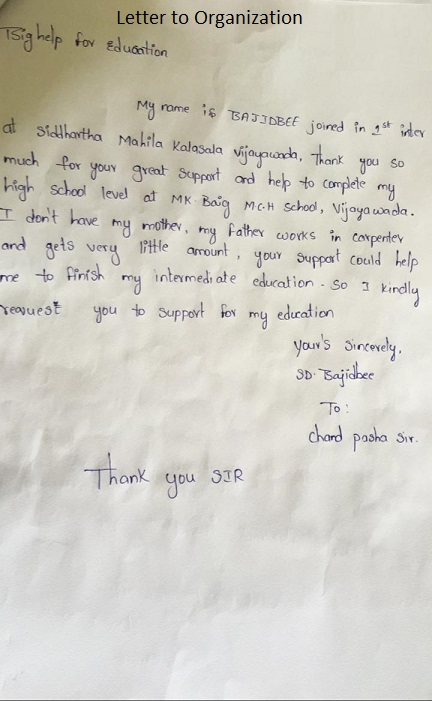 Letter to Organization
Big help for Education
My name is BAJIDBEE joined in 1st inter
at Siddhartha Mahila Kalasala Vijayawada, Thank you so
much for your great support and help to complete my
high school level at MK. Baig M.C.H School, Vijayawada.
I don't have my mother, my father works in carpenter
and gets very little amount, your support could help
me to finish my intermediate education. So I kindly
request you to support for my education
your's sincerely,
SD. Bajidbee
To:
Chand pasha Sir.
Thank you SIR